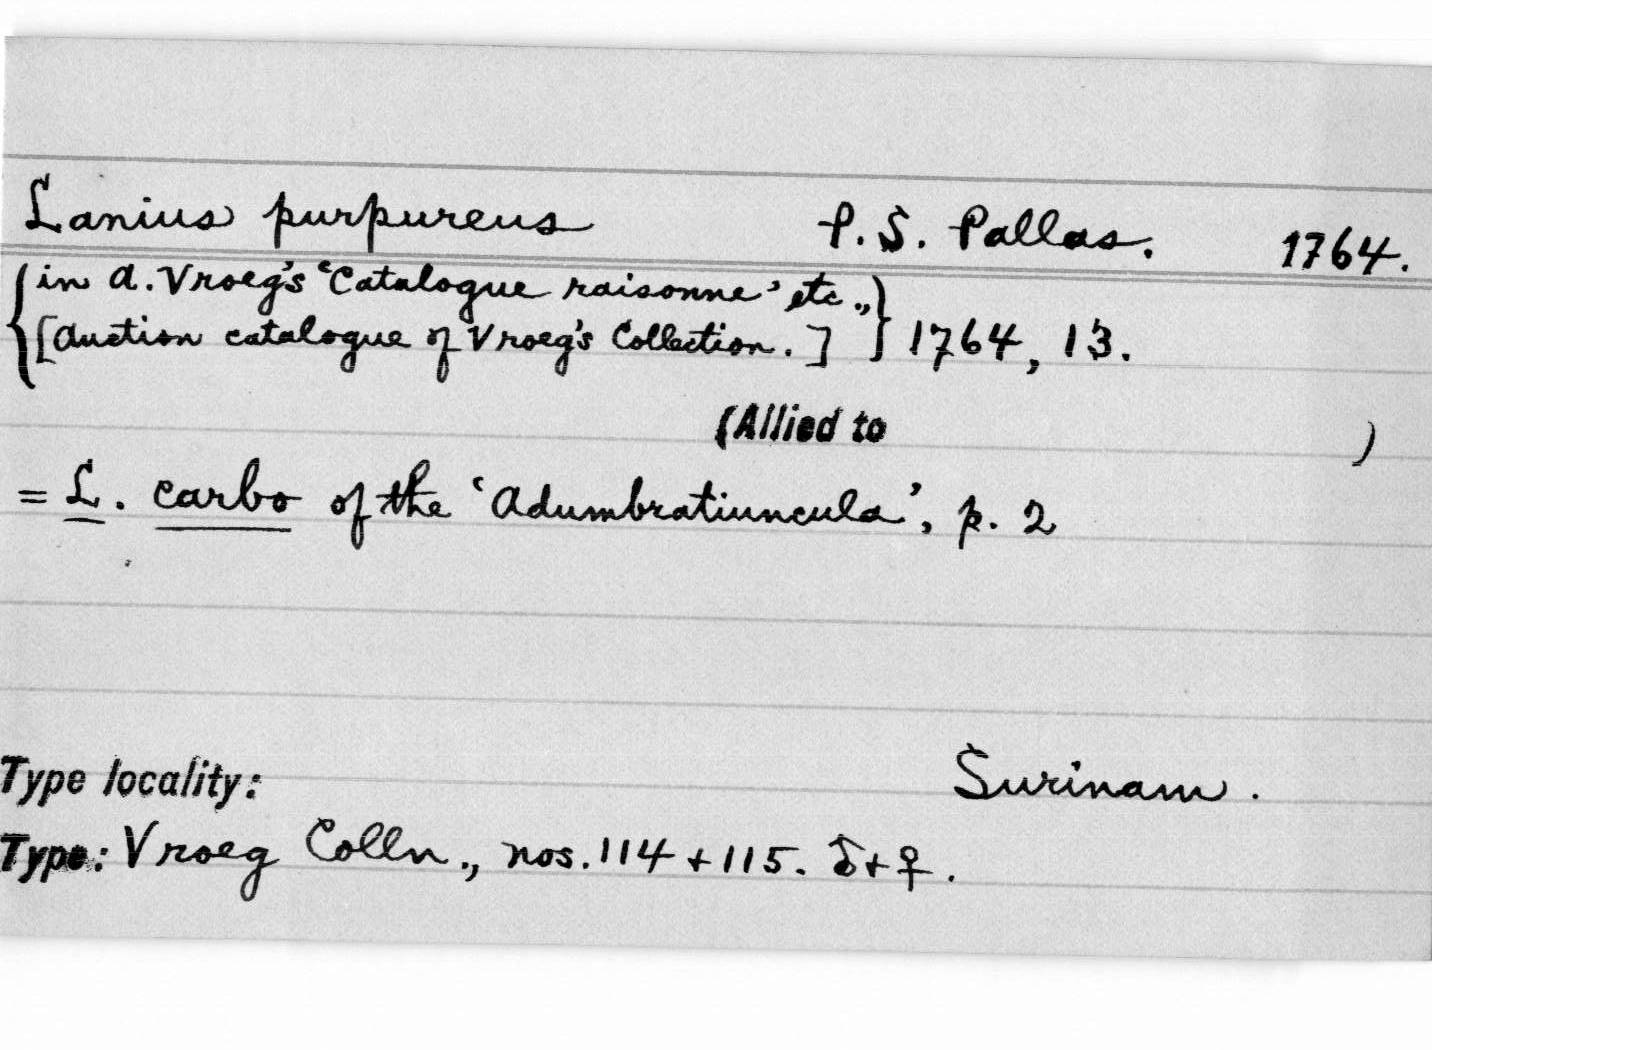 Lanius purpureus P. S. Pallas. 1764.
{in A. Vroeg's 'Catalogue raisonne' etc.,}
{[Auction catalogue of Vroeg's Collection.]} 1764, 13.
(Allied to )
= L. carbo of the 'Adumbratiuncula', p. 2
Type locality: Surinam.
Type: Vroeg Colln., nos. 114 + 115. ♂ + ♀.